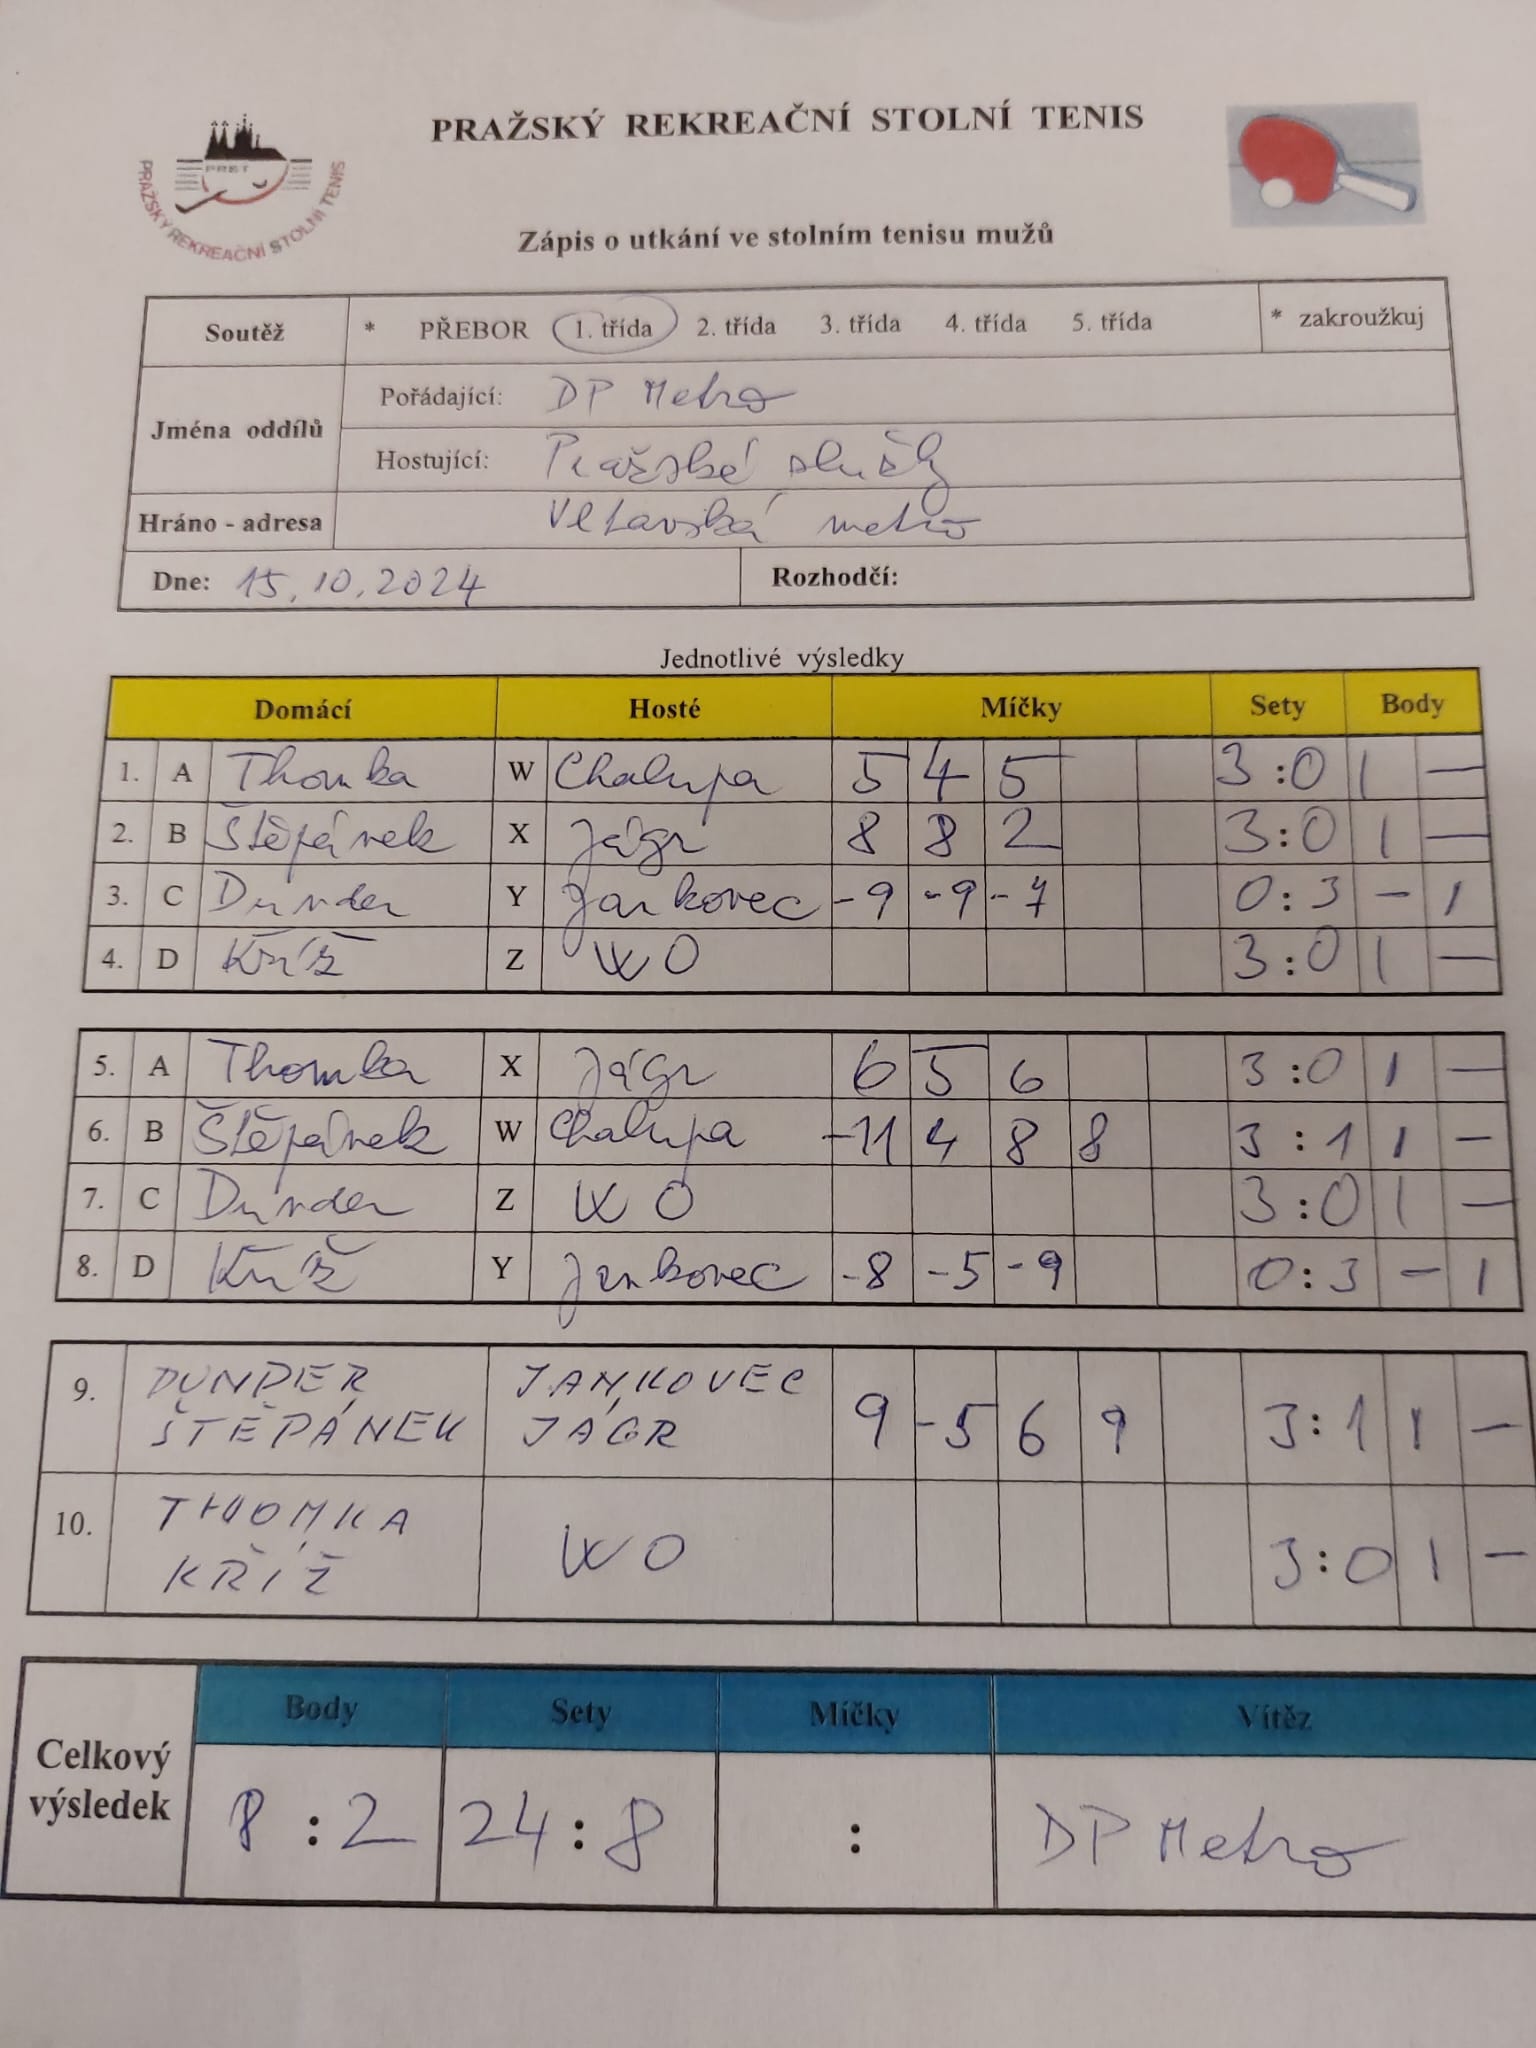 PRAŽSKÝ REKREAČNÍ STOLNÍ TENIS
PRET
PRAŽSKÝ REKREAČNÍ STOLNÍ TENIS
Zápis o utkání ve stolním tenisu mužů
Soutěž * PŘEBOR 1. třída 2. třída 3. třída 4. třída 5. třída * zakroužkuj
Jména oddílů
Pořádající: DP Metro
Hostující: Pražské služby
Hráno - adresa Vltavská metro
Dne: 15.10.2024 Rozhodčí:
Jednotlivé výsledky
Domácí Hosté Míčky Sety Body
1. A Thomka W Chalupa 5 4 5 3:0 1 –
2. B Štěpánek X Jágr 8 8 2 3:0 1 –
3. C Dunder Y Jankovec -9 -9 -7 0:3 – 1
4. D Kříž Z WO 3:0 1 –
5. A Thomka X Jágr 6 5 6 3:0 1 –
6. B Štěpánek W Chalupa -11 4 8 8 3:1 1 –
7. C Dunder Z WO 3:0 1 –
8. D Kříž Y Jankovec -8 -5 -9 0:3 – 1
9. DUNDER JANKOVEC
ŠTĚPÁNEK JÁGR 9 -5 6 9 3:1 1 –
10. THOMKA
KŘÍŽ WO 3:0 1 –
Body Sety Míčky Vítěz
Celkový výsledek 8:2 24:8 : DP Metro